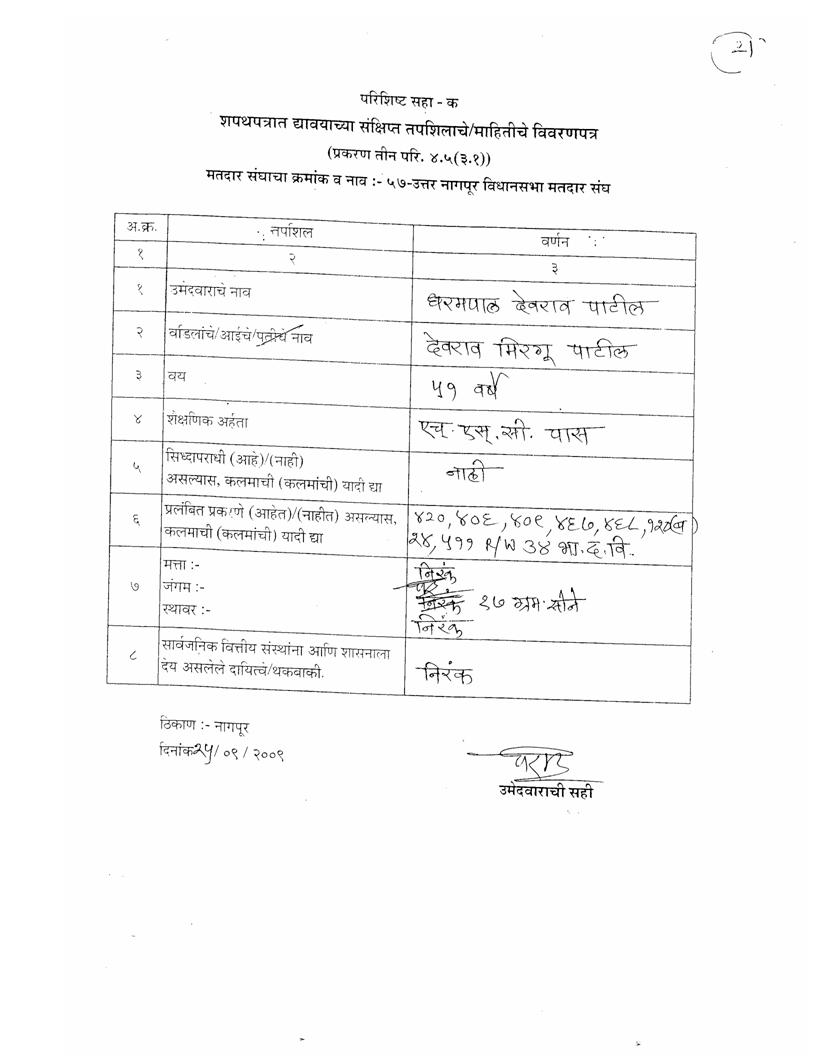 21
परिशिष्ट सहा - क
शपथपत्रात द्यावयाच्या संक्षिप्त तपशिलाचे/माहितीचे विवरणपत्र
(प्रकरण तीन परि. ४.५(३.१))
मतदार संघाचा क्रमांक व नाव :- ५७-उत्तर नागपूर विधानसभा मतदार संघ
अ.क्र. तपशिल वर्णन
१ २ ३
१ उमेदवाराचे नाव धरमपाल देवराव पाटील
२ वडिलांचे/आईचे/पतीचे नाव देवराव मिरगू पाटील
३ वय ५१ वर्षे
४ शैक्षणिक अर्हता एच. एस. सी. पास
५ सिध्दापराधी (आहे)/(नाही) नाही
असल्यास, कलमाची (कलमांची) यादी द्या
६ प्रलंबित प्रकरणे (आहेत)/(नाहीत) असल्यास, ४२०, ४०६, ४०९, ४६७, ४६८, १२०(ब)
कलमाची (कलमांची) यादी द्या २४, ५११ R/W ३४ भा.द.वि.
७ मत्ता :- निरंक
जंगम :- निरंक १७ ग्रम: सोने
स्थावर :- निरंक
८ सार्वजनिक वित्तीय संस्थांना आणि शासनाला
देय असलेले दायित्वे/थकबाकी. निरंक
ठिकाण :- नागपूर
दिनांक २५/ ०९ / २००९
उमेदवाराची सही